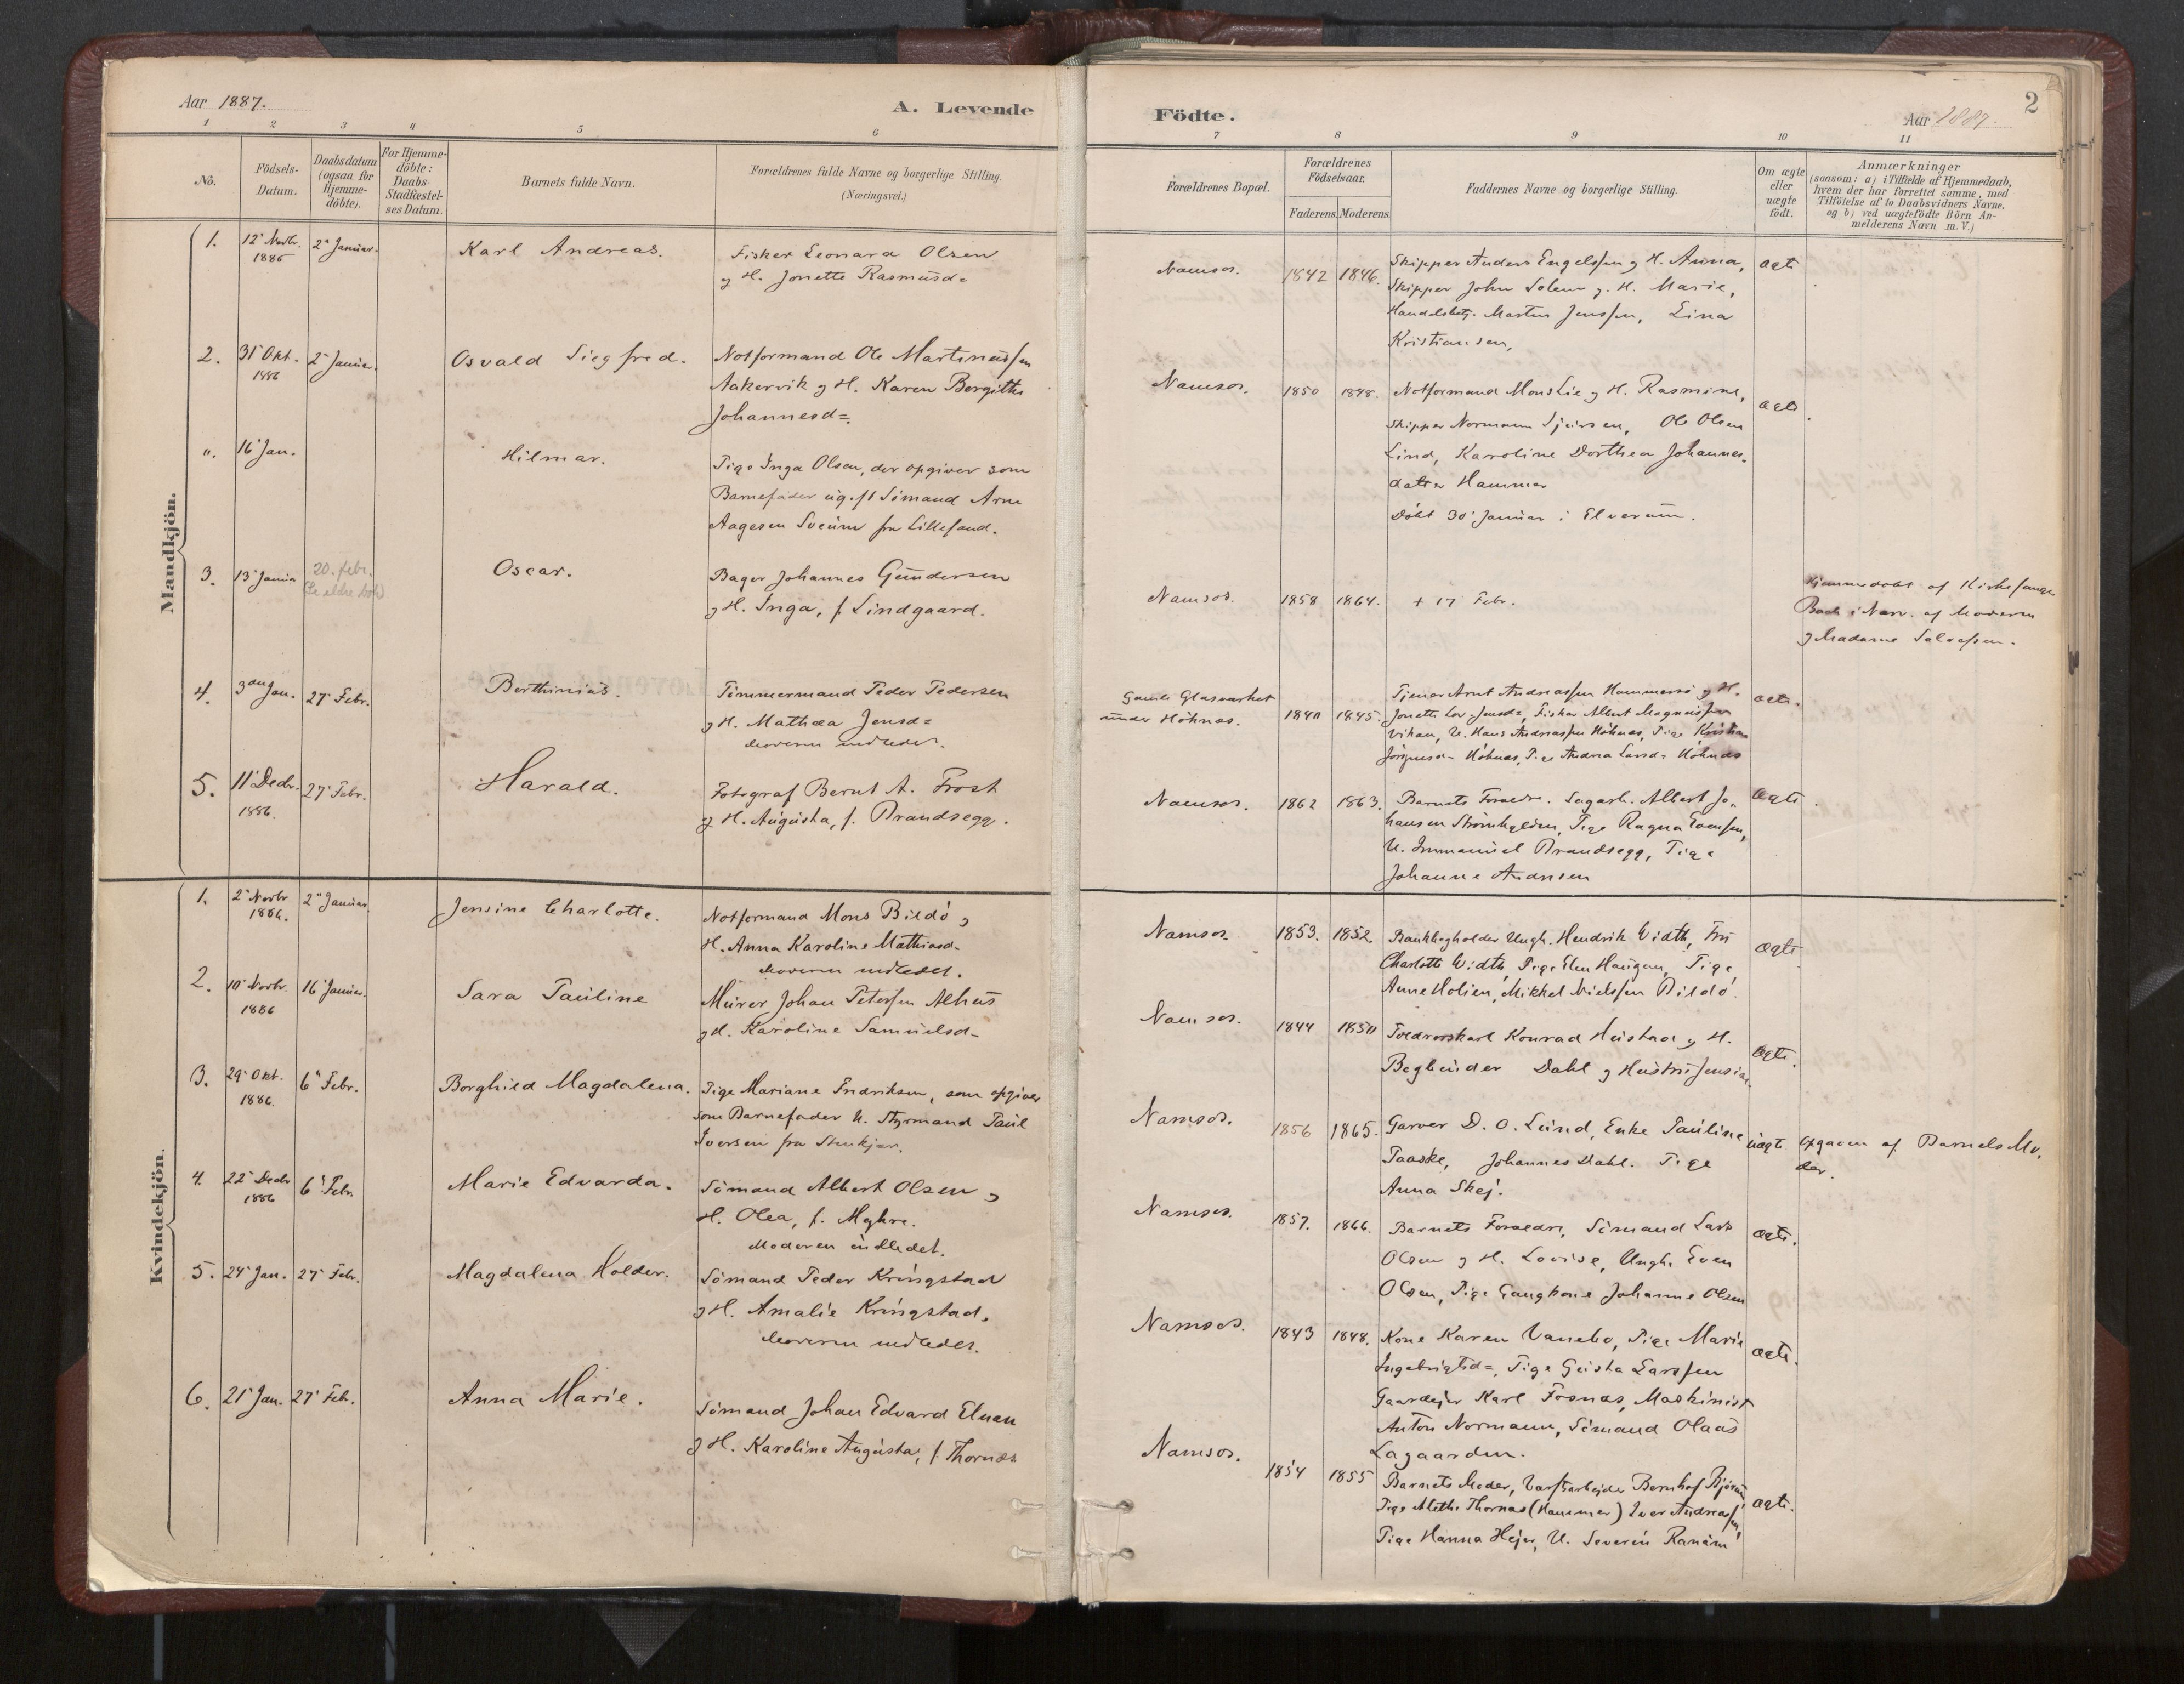 Aar 1887.
A. Levende
Födte.
Aar 1887.
2
1 2 3 4 5 6 7 8 9 10 11
No.
Födsels-
Datum.
Daabsdatum
(ogsaa for
Hjemme-
döbte).
For Hjemme-
döbte:
Daabs-
Stadfæstel-
ses Datum.
Barnets fulde Navn.
Forældrenes fulde Navne og borgerlige Stilling.
(Næringsvei.)
Forældrenes Bopæl.
Forældrenes
Födselsaar.
Faderens. Moderens.
Faddernes Navne og borgerlige Stilling.
Om ægte
eller
uægte
födt.
Anmærkninger
(saasom: a) i Tilfælde af Hjemmedaab,
hvem der har forrettet samme, med
Tilföielse af to Daabsvidners Navne,
og b) ved uægtefödte Börn An-
melderens Navn m.V.)
Mandkjön.
1. 12 Novbr. 2 Januar. Karl Andreas. Fisker Leonard Olsen
1886
g H. Jonette Rasmusd=
Namsos. 1842 1846. Skipper Anders Engelssen g H. Anna, ægte
Skipper John Solem g. H. Marie,
Handelsbetj. Martin Jenssen, Lina
Kristiansen,
2. 31 Okt. 2 Januar. Osvald Siegfred. Notformand Ole Martinussen
1886
Aakervik g H. Karen Bergitte
Johannesd=.
Namsos. 1850 1848. Notformand Mons Lie g H. Rasmine, ægte.
Skipper Normann Sjursen, Ole Olsen
Lind, Karoline Dorthea Johannes-
datter Hammer
". 16 Jan. Hilmar. Pige Inga Olsen, der opgiver som
Barnefader ug. ft Sömand Arne
Aagesen Sveum fra Lillesand.
Döbt 30 Januar i Elverum.
3. 13 Janua 20. febr. Oscar. Bager Johannes Gundersen
(Se eldre bok)
g H. Inga, f. Lindgaard.
Namsos. 1858 1864. + 17 Febr.
Hjemmedöbt af Kirkesanger
Bach i Nærv. af Moderen
g Madame Salvesen.
4. 3 Jan. 27 Febr. Berthinius. Tömmermand Peder Pedersen
g H. Mathea Jensd=
Moderen indledet.
Gamle Glasværket
under Höknes. 1840 1845. Tjener Arnt Andreassen Hammersö g H. ægte.
Jonette Lov. Jensd=, Fisker Albert Magnussen
Vikan, U. Hans Andreassen Höknes, Pige Kristine
Jörginsd= Höknes, Pige Andrea Larsd= Höknes
5. 11 Decbr. 27 Febr. Harald. Fotograf Bernt A. Frost
1886.
g H. Augusta, f. Brandsegg.
Namsos. 1862 1863. Barnets Forældre. Sagarb. Albert Jo- ægte.
hansen Strömhylden, Pige Ragna Evensen,
U. Immanuel Brandsegg, Pige
Johanne Andresen
Kvindekjön.
1. 2 Novbr 2 Januar Jensine Charlotte. Notformand Mons Bildö g
1886.
H. Anna Karoline Mathiasd-
Moderen indledet.
Namsos. 1853. 1852. Bankbogholder Ungk. Hendrik Width, Fru ægte
Charlotte Width, Pige Elen Haugan, Pige
Anne Holien, Mikkel Nielssen Bildö.
2. 10 Novbr. 16 Januar. Sara Pauline Murer Johan Peterssen Alhus
1886
g H. Karoline Samuelsd-
Namsos. 1844 1850 Toldroerskarl Konrad Heistad g H. ægte.
Bogbinder Dahl g Hustru Jensine.
3. 29 Okt. 6 Febr. Borghild Magdalena. Pige Mariane Fredriksen, som opgiver
1886.
som Barnefader U. Styrmand Paul
Iversen fra Stenkjær.
Namsos. 1856 1865. Garver D. O. Lund, Enke Pauline uægte Opgaven af Barnets Mo-
Paaske, Johannes Dahl. Pige der.
Anna Skej.
4. 22 Decbr 6 Febr. Marie Edvarda. Sömand Albert Olsen g
1886
H. Olea, f. Myhre.
Moderen indledet.
Namsos. 1857. 1866. Barnets Forældre, Sömand Lars ægte.
Olsen g H. Lovise, Ungk. Even
Olsen, Pige Gangkone Johanne Olsen
5. 24 Jan. 27 Febr. Magdalena Holder. Sömand Peder Kringstad
g H. Amalie Kringstad.
Moderen indledet.
Namsos. 1843 1848. Kone Karen Vanebo, Pige Marie ægte.
Ingebrigtsd=, Pige Geista Larssen
Gaardejer Karl Fosnæs, Maskinist
Anton Normann, Sömand Olaus
Lagaarden.
6. 21 Jan. 27 Feb. Anna Marie. Sömand Johan Edvard Elnan
g H. Karoline Augusta, f. Thornæs
Namsos. 1854 1855 Barnets Moder, Værftsarbejder Bernhof Björum ægte.
Pige Mette Thornæs (Hammer) Iver Andreassen,
Pige Hanna Hejer, U. Severin Ranum